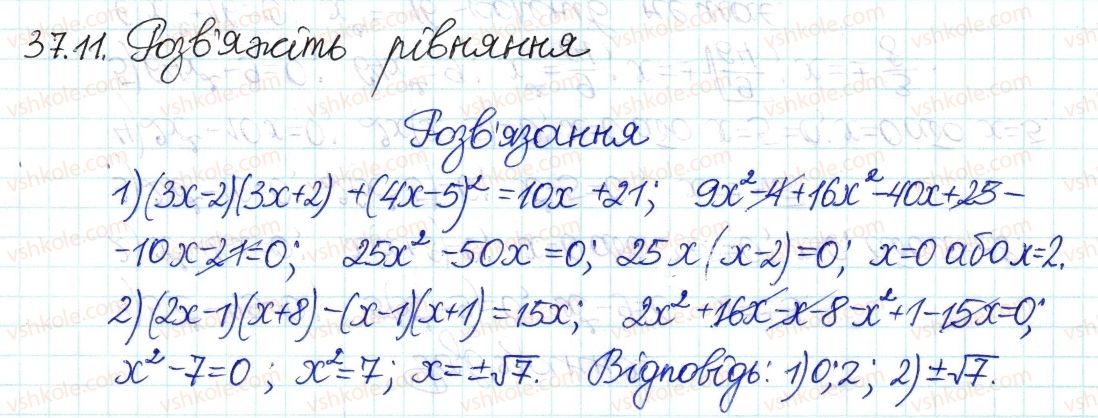 37.11. Розв'яжіть рівняння
Розв'язання
1) (3x-2)(3x+2) + (4x-5)² = 10x + 21; 9x² - 4 + 16x² - 40x + 25 -
- 10x - 21 = 0; 25x² - 50x = 0; 25x(x-2) = 0; x = 0 або x = 2.
2) (2x-1)(x+8) - (x-1)(x+1) = 15x; 2x² + 16x - x - 8 - x² + 1 - 15x = 0;
x² - 7 = 0; x² = 7; x = ±√7. Відповідь: 1) 0; 2; 2) ±√7.
vshkole.com